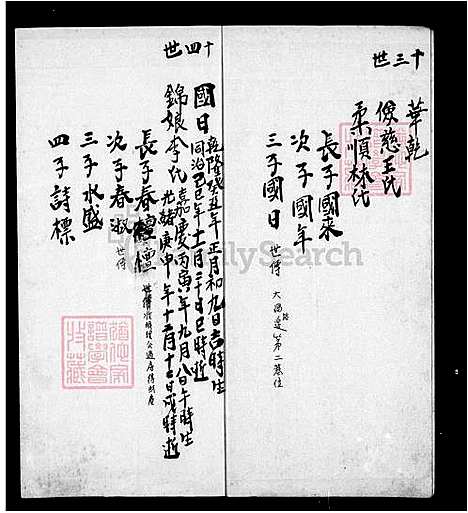 十三世
華乾
俊慈王氏
柔順林氏
長子國来
次子國年
三子國日 世傳
第二墓位
十四世
國日 乾隆 五年正月初九日吉時生
同治己巳年十一月二十日巳時逝
錦娘李氏 嘉慶丙寅年九月八日午時生
光緒庚申年十二月十七日戌時逝
長子春檀 檀
次子春淑 世傳
三子水盛
四子詩標
FamilySearch